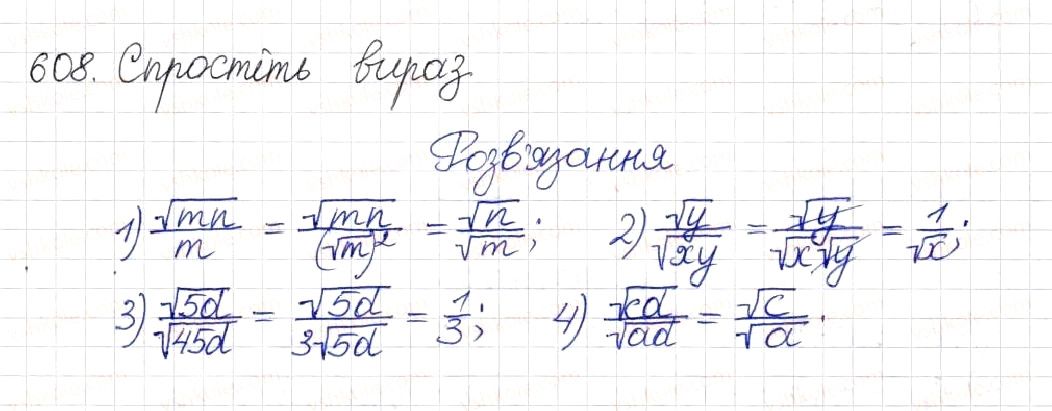 608. Спростіть вираз
Розв'язання
1) √mn/m = √mn/(√m)² = √n/√m; 2) √y/√xy = √y/√x√y = 1/√x;
3) √5d/√45d = √5d/3√5d = 1/3; 4) √cd/√ad = √c/√a.